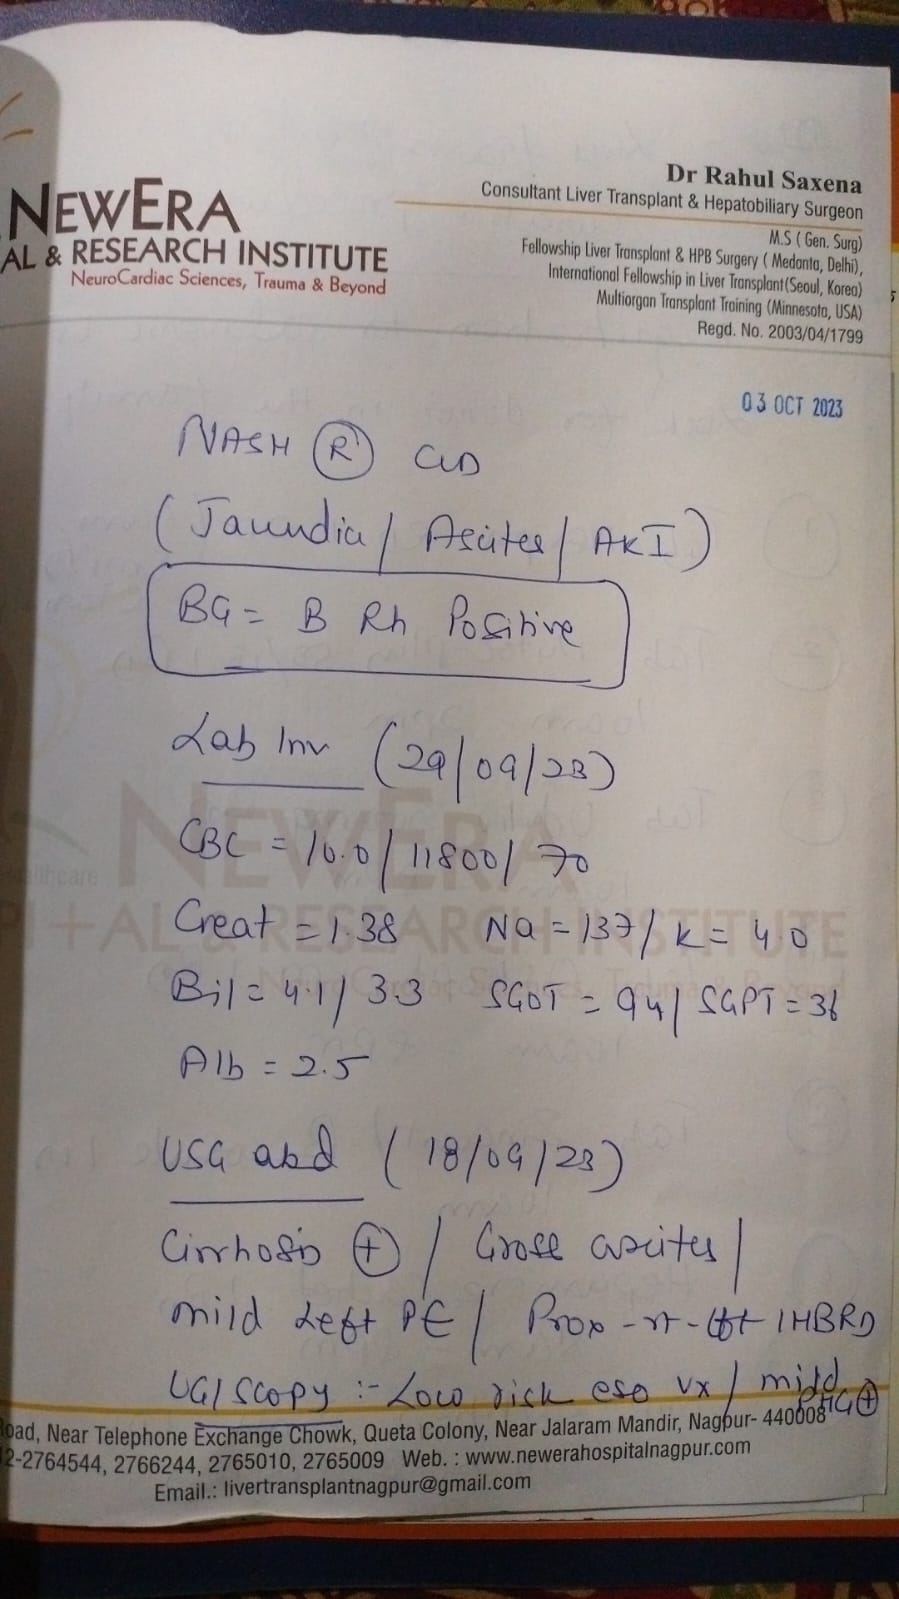 NEWERA
AL & RESEARCH INSTITUTE
NeuroCardiac Sciences, Trauma & Beyond
Dr Rahul Saxena
Consultant Liver Transplant & Hepatobiliary Surgeon
M.S ( Gen. Surg)
Fellowship Liver Transplant & HPB Surgery ( Medanta, Delhi),
International Fellowship in Liver Transplant(Seoul, Korea)
Multiorgan Transplant Training (Minnesota, USA)
Regd. No. 2003/04/1799
03 OCT 2023
NASH (R) CLD
( Jaundice / Ascites / AKI )
BG = B Rh Positive
Lab Inv (29/09/23)
CBC = 10.0 / 11800 / 70
Creat = 1.38 Na = 137 / K = 4.0
Bil = 4.1 / 3.3 SGOT = 94 / SGPT = 36
Alb = 2.5
USG abd ( 18/09/23)
Cirrhosis (+) / Gross ascites /
mild Left PE / Prox - rt - lft IHBRD
UGI SCOPY :- Low risk eso vx / mild PHG (+)
Road, Near Telephone Exchange Chowk, Queta Colony, Near Jalaram Mandir, Nagpur- 440008
2-2764544, 2766244, 2765010, 2765009 Web. : www.newerahospitalnagpur.com
Email.: livertransplantnagpur@gmail.com